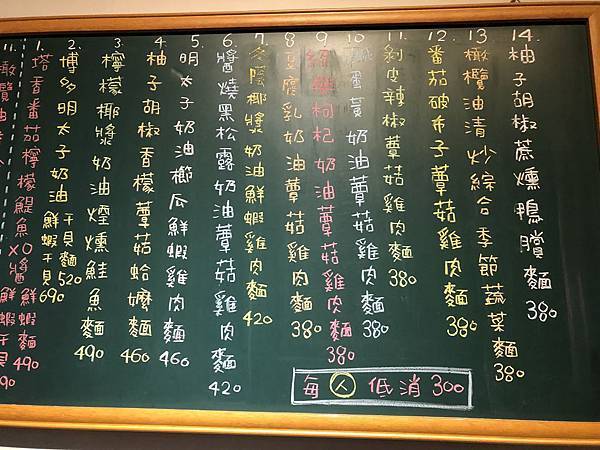 14. 柚子胡椒蔗燻鴨賸麵 380
13. 橄欖油清炒綜合季節蔬菜麵 380
12. 番茄破布子蕈菇雞肉麵 380
11. 剝皮辣椒蕈菇雞肉麵 380
10. 鹹蛋黃奶油蕈菇雞肉麵 380
9. 紹興枸杞奶油蕈菇雞肉麵 380
8. 豆腐乳奶油蕈菇雞肉麵 380
7. 冬陰椰漿奶油鮮蝦雞肉麵 420
6. 醬燒黑松露奶油蕈菇雞肉麵 420
5. 明太子奶油櫛瓜鮮蝦雞肉麵 460
4. 柚子胡椒香檬蕈菇蛤蠣麵 460
3. 檸檬椰漿奶油煙燻鮭魚麵 490
2. 博多明太子奶油 干貝麵 520
鮮蝦干貝 690
1. 塔香番茄檸檬鯷魚XO醬鮮蝦麵 490
11. 橄欖油
鮮蝦干
90
每人低消300